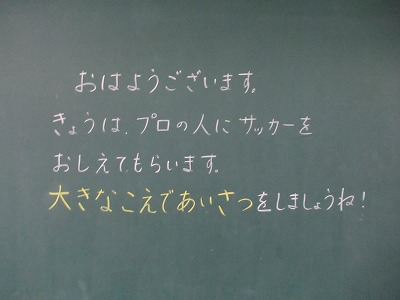 おはようございます。
きょうは、プロの人にサッカーを
おしえてもらいます。
大きなこえであいさつをしましょうね!